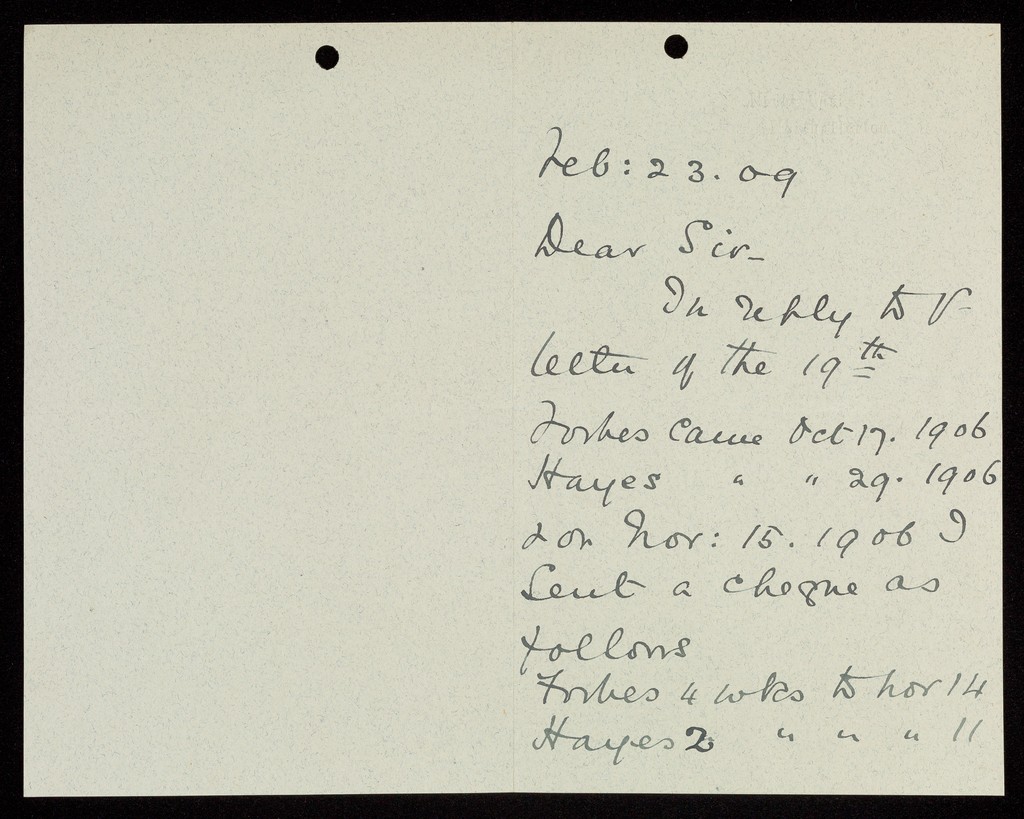 Feb: 23. 09
Dear Sir -
In reply to yr
letter of the 19th
Forbes came Oct 17. 1906
Hayes " " 29. 1906
& on Nov: 15. 1906 I
Sent a cheque as
follows
Forbes 4 wks to Nov 14
Hayes 2 " " " 11